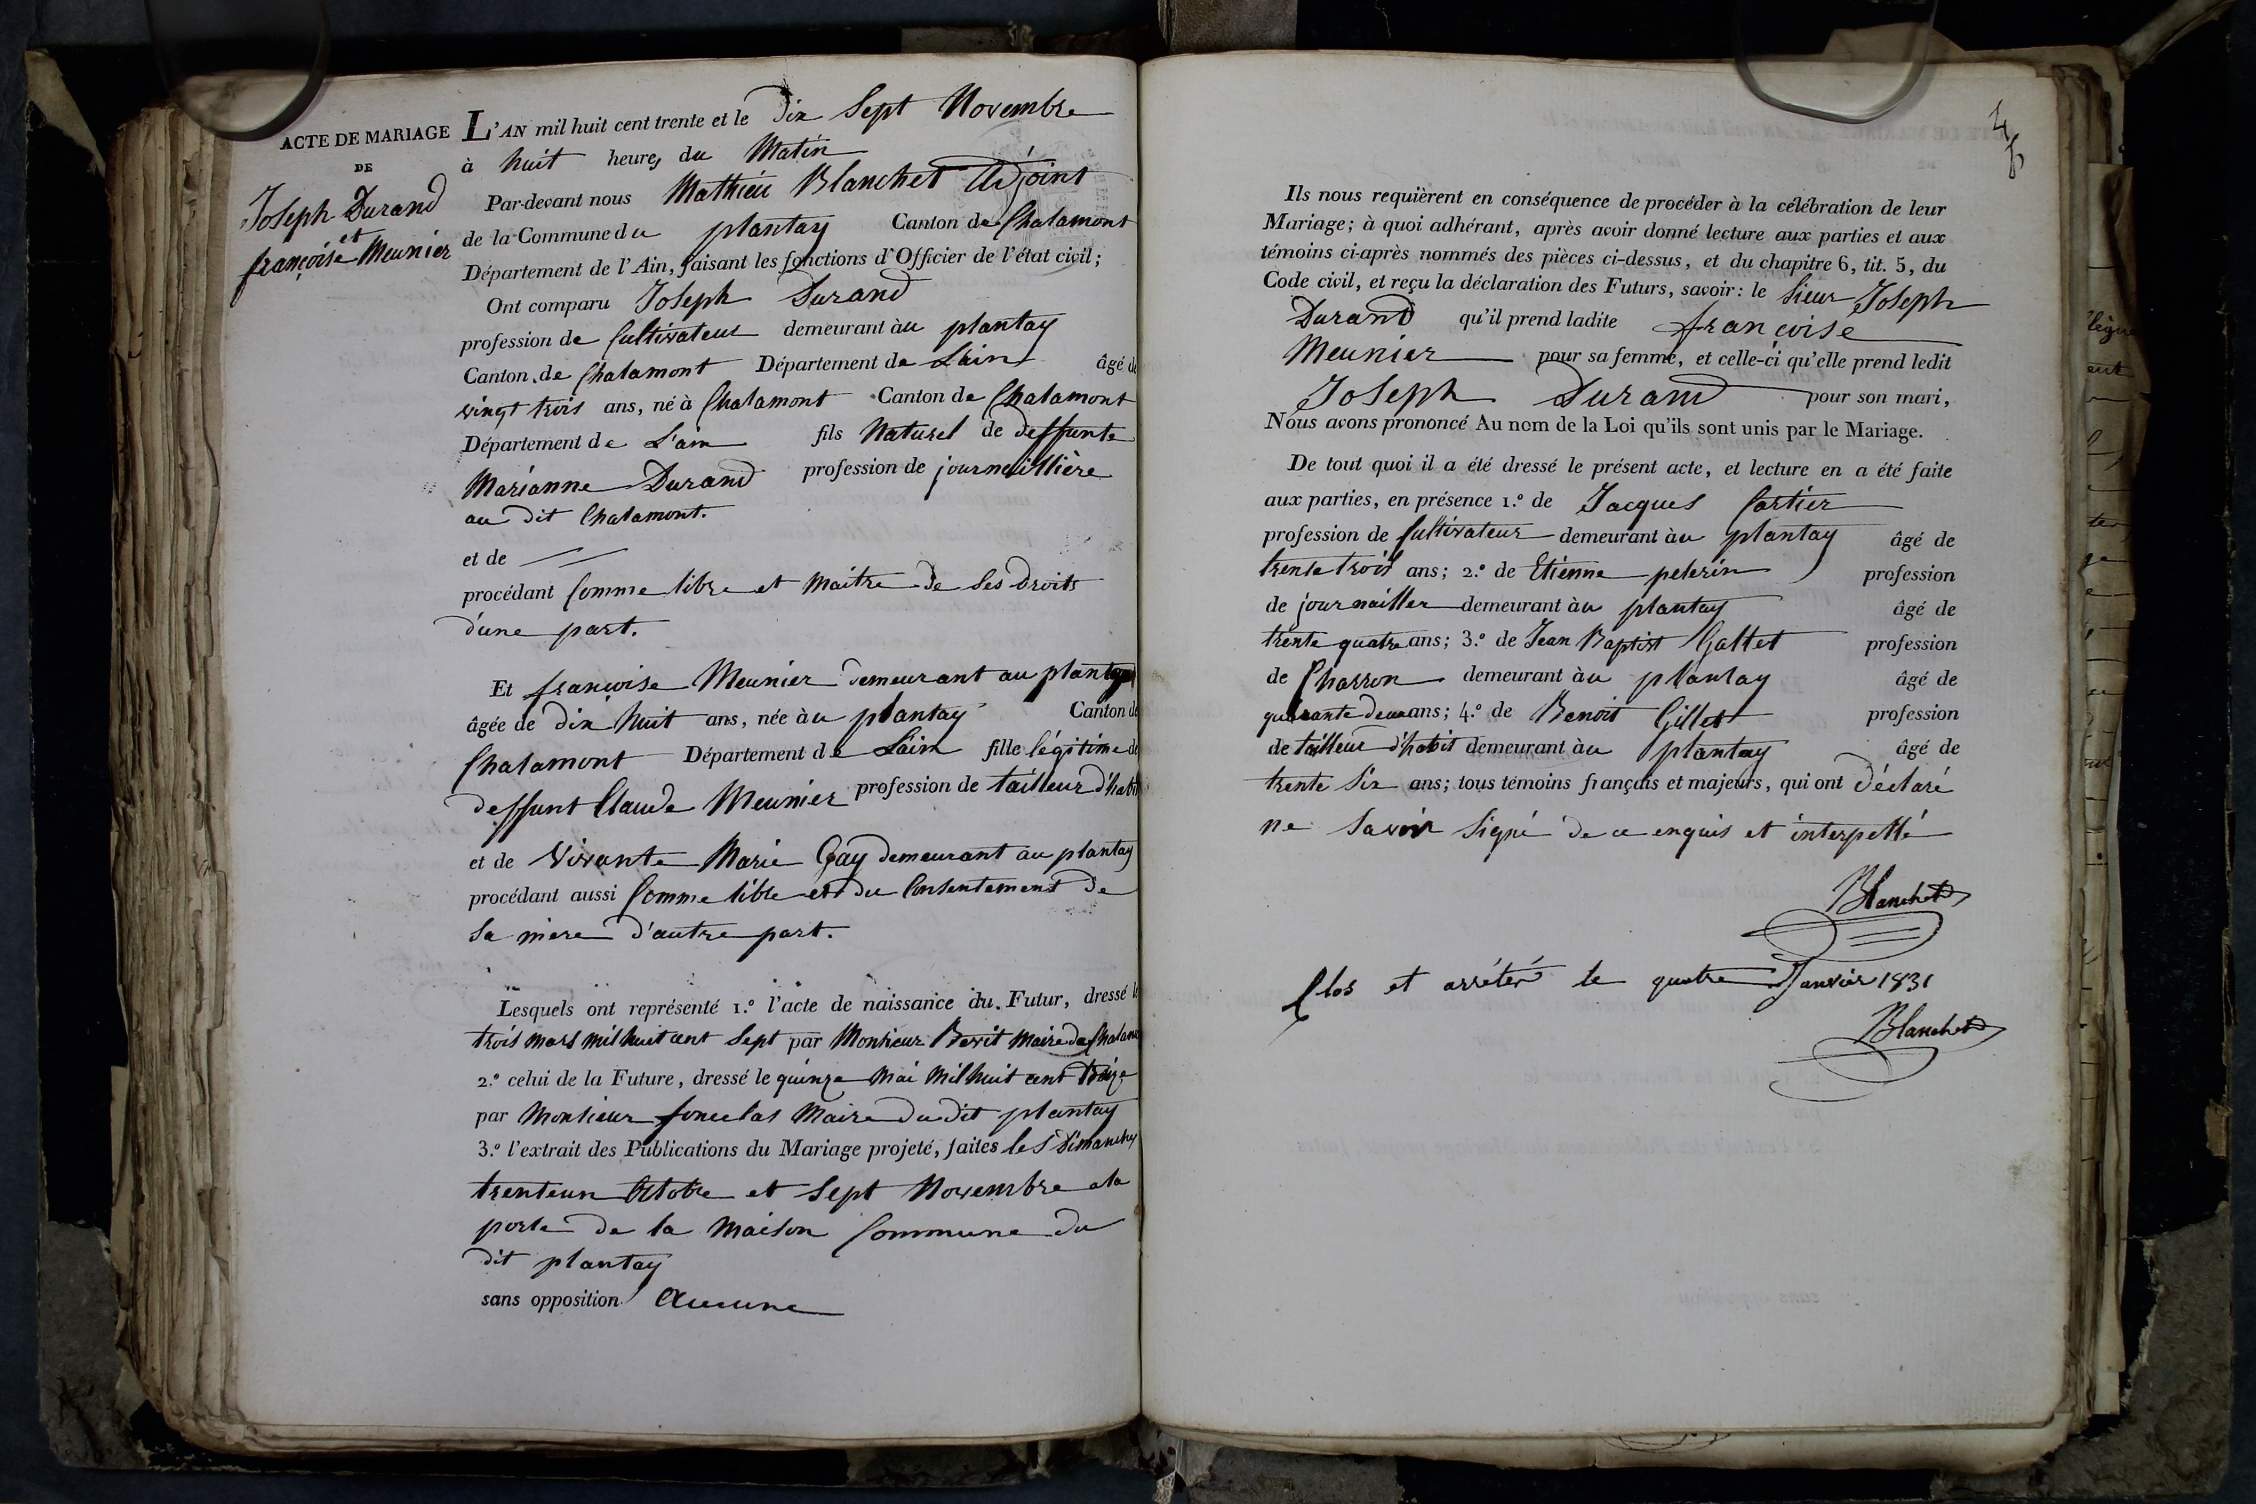 ACTE DE MARIAGE
DE
Joseph Durand
et
françoise Meunier
L'AN mil huit cent trente et le dix Sept Novembre
à huit heures du Matin
Par-devant nous Mathieu Blanchet Adjoint
de la Commune du plantay Canton de Chalamont
Département de l'Ain, faisant les fonctions d'Officier de l'état civil;
Ont comparu Joseph Durand
profession de Cultivateur demeurant àu plantay
Canton de Chalamont Département de L'ain âgé de
vingt trois ans, né à Chalamont Canton de Chalamont
Département de L'ain fils Naturel de deffunte
Marianne Durand profession de journaillière
au dit Chalamont.
et de
procédant Comme libre et Maitre de Ses Droits
d'une part.
Et françoise Meunier demeurant au plantay
âgée de dix huit ans, née àu plantay Canton de
Chalamont Département de L'ain fille légitime de
deffunt Claude Meunier profession de tailleur d'habit
et de Vivante Marie Gay demeurant au plantay
procédant aussi Comme libre et du Consentement de
Sa mère d'autre part.
Lesquels ont représenté 1.º l'acte de naissance du Futur, dressé le
trois mars mil huit cent Sept par Monsieur Maire de Chalamo
2.º celui de la Future, dressé le quinze Mai Mil huit cent
par Monsieur Maire du dit plantay
3.º l'extrait des Publications du Mariage projeté, faites les Dimanches
trente un Octobre et Sept Novembre a la
porte de la Maison Commune du
dit plantay
sans opposition Aucune
Ils nous requièrent en conséquence de procéder à la célébration de leur
Mariage; à quoi adhérant, après avoir donné lecture aux parties et aux
témoins ci-après nommés des pièces ci-dessus, et du chapitre 6, tit. 5, du
Code civil, et reçu la déclaration des Futurs, savoir: le Sieur Joseph
Durand qu'il prend ladite françoise
Meunier pour sa femme, et celle-ci qu'elle prend ledit
Joseph Durand pour son mari,
Nous avons prononcé Au nom de la Loi qu'ils sont unis par le Mariage.
De tout quoi il a été dressé le présent acte, et lecture en a été faite
aux parties, en présence 1.º de Jacques Cartier
profession de Cultivateur demeurant àu plantay âgé de
trente trois ans; 2.º de Etienne pelerin profession
de journailler demeurant àu plantay âgé de
trente quatre ans; 3.º de Jean Baptist Gallet profession
de Charron demeurant àu plantay âgé de
quarante deux ans; 4.º de Benoit Gillet profession
de tailleur d'habit demeurant àu plantay âgé de
trente Six ans; tous témoins français et majeurs, qui ont déclaré
ne Savoir Signé de ce enquis et interpellé
Blanchet
Clos et arrêté le quatre Janvier 1831
Blanchet